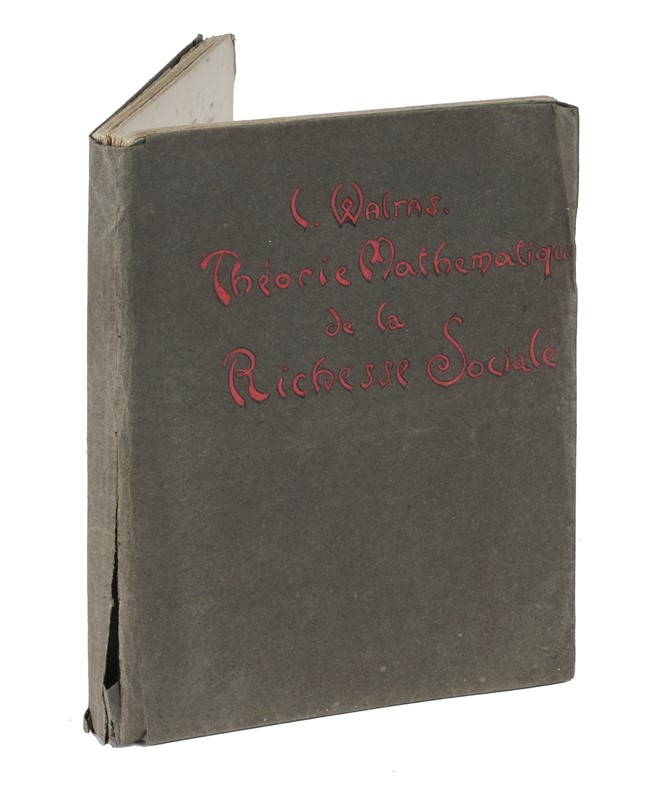 L. Walras.
Théorie Mathematique
de la
Richesse Sociale